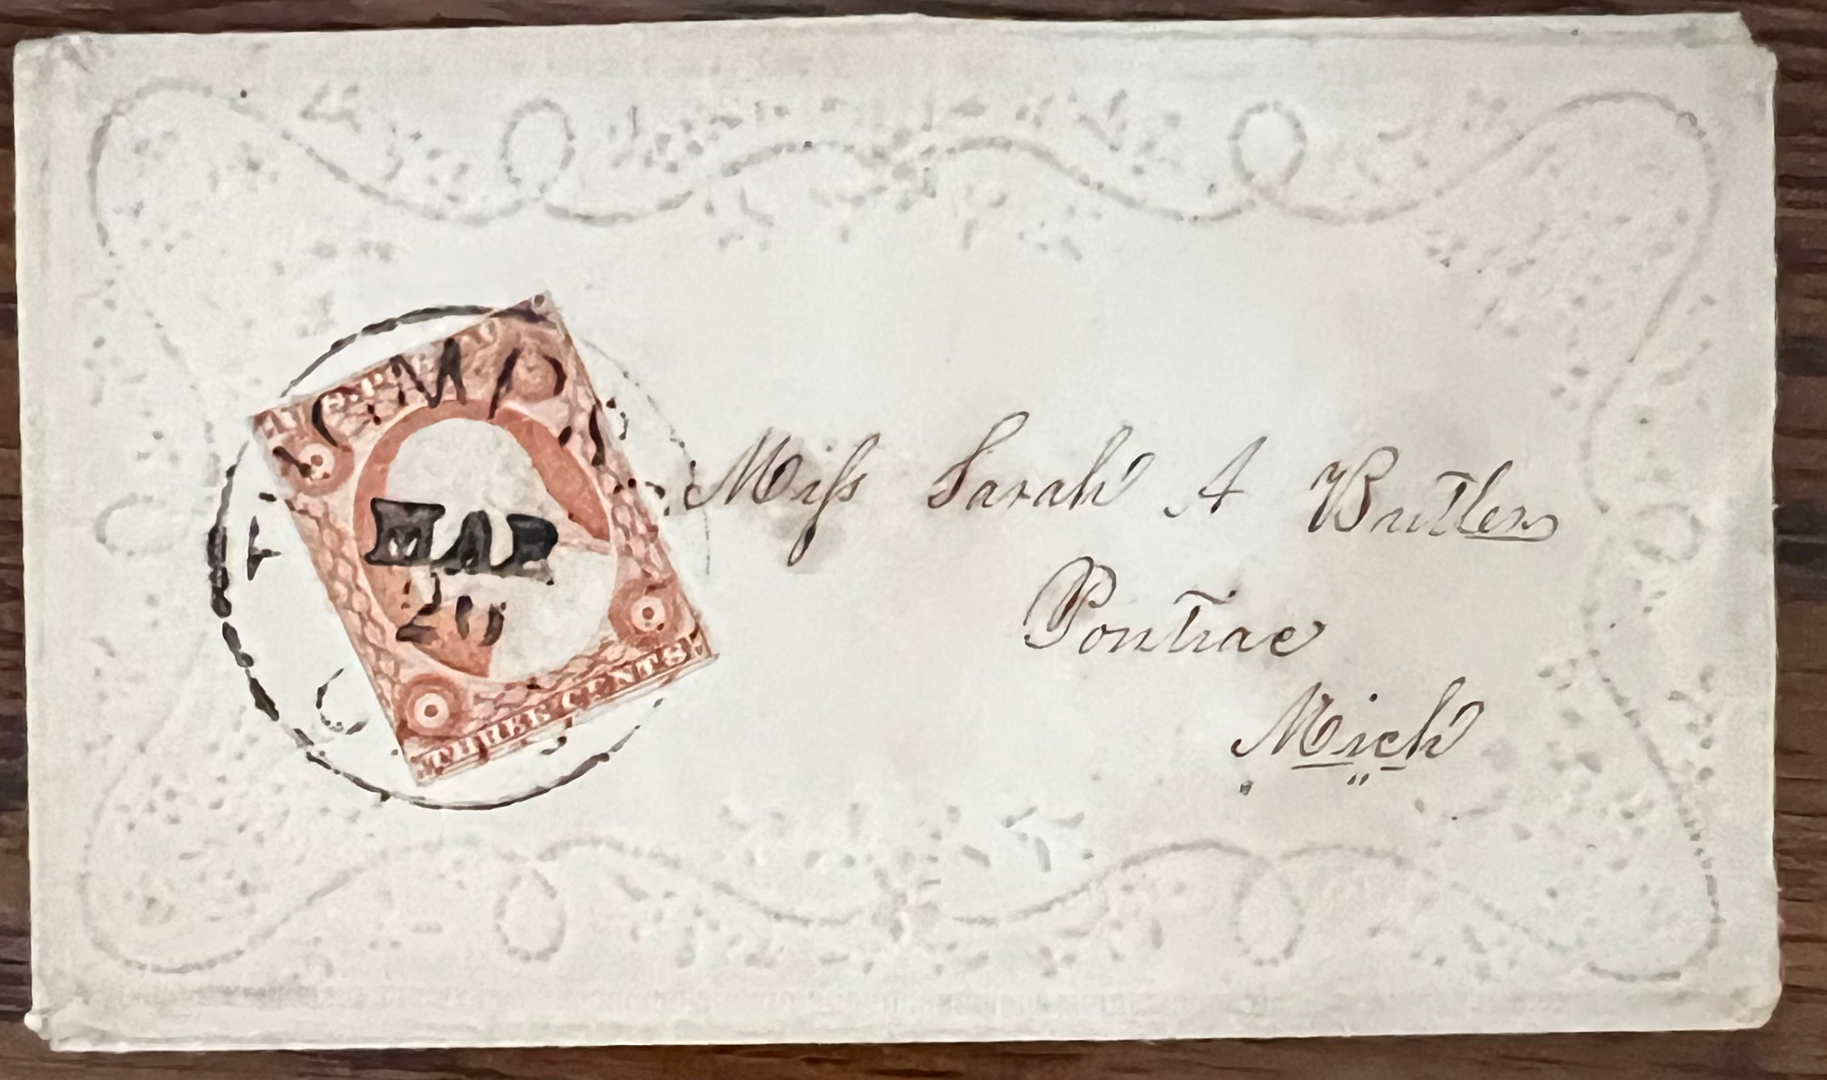 MAR
26
THREE CENTS
Miſs Sarah A Butler
Pontiac
Mich